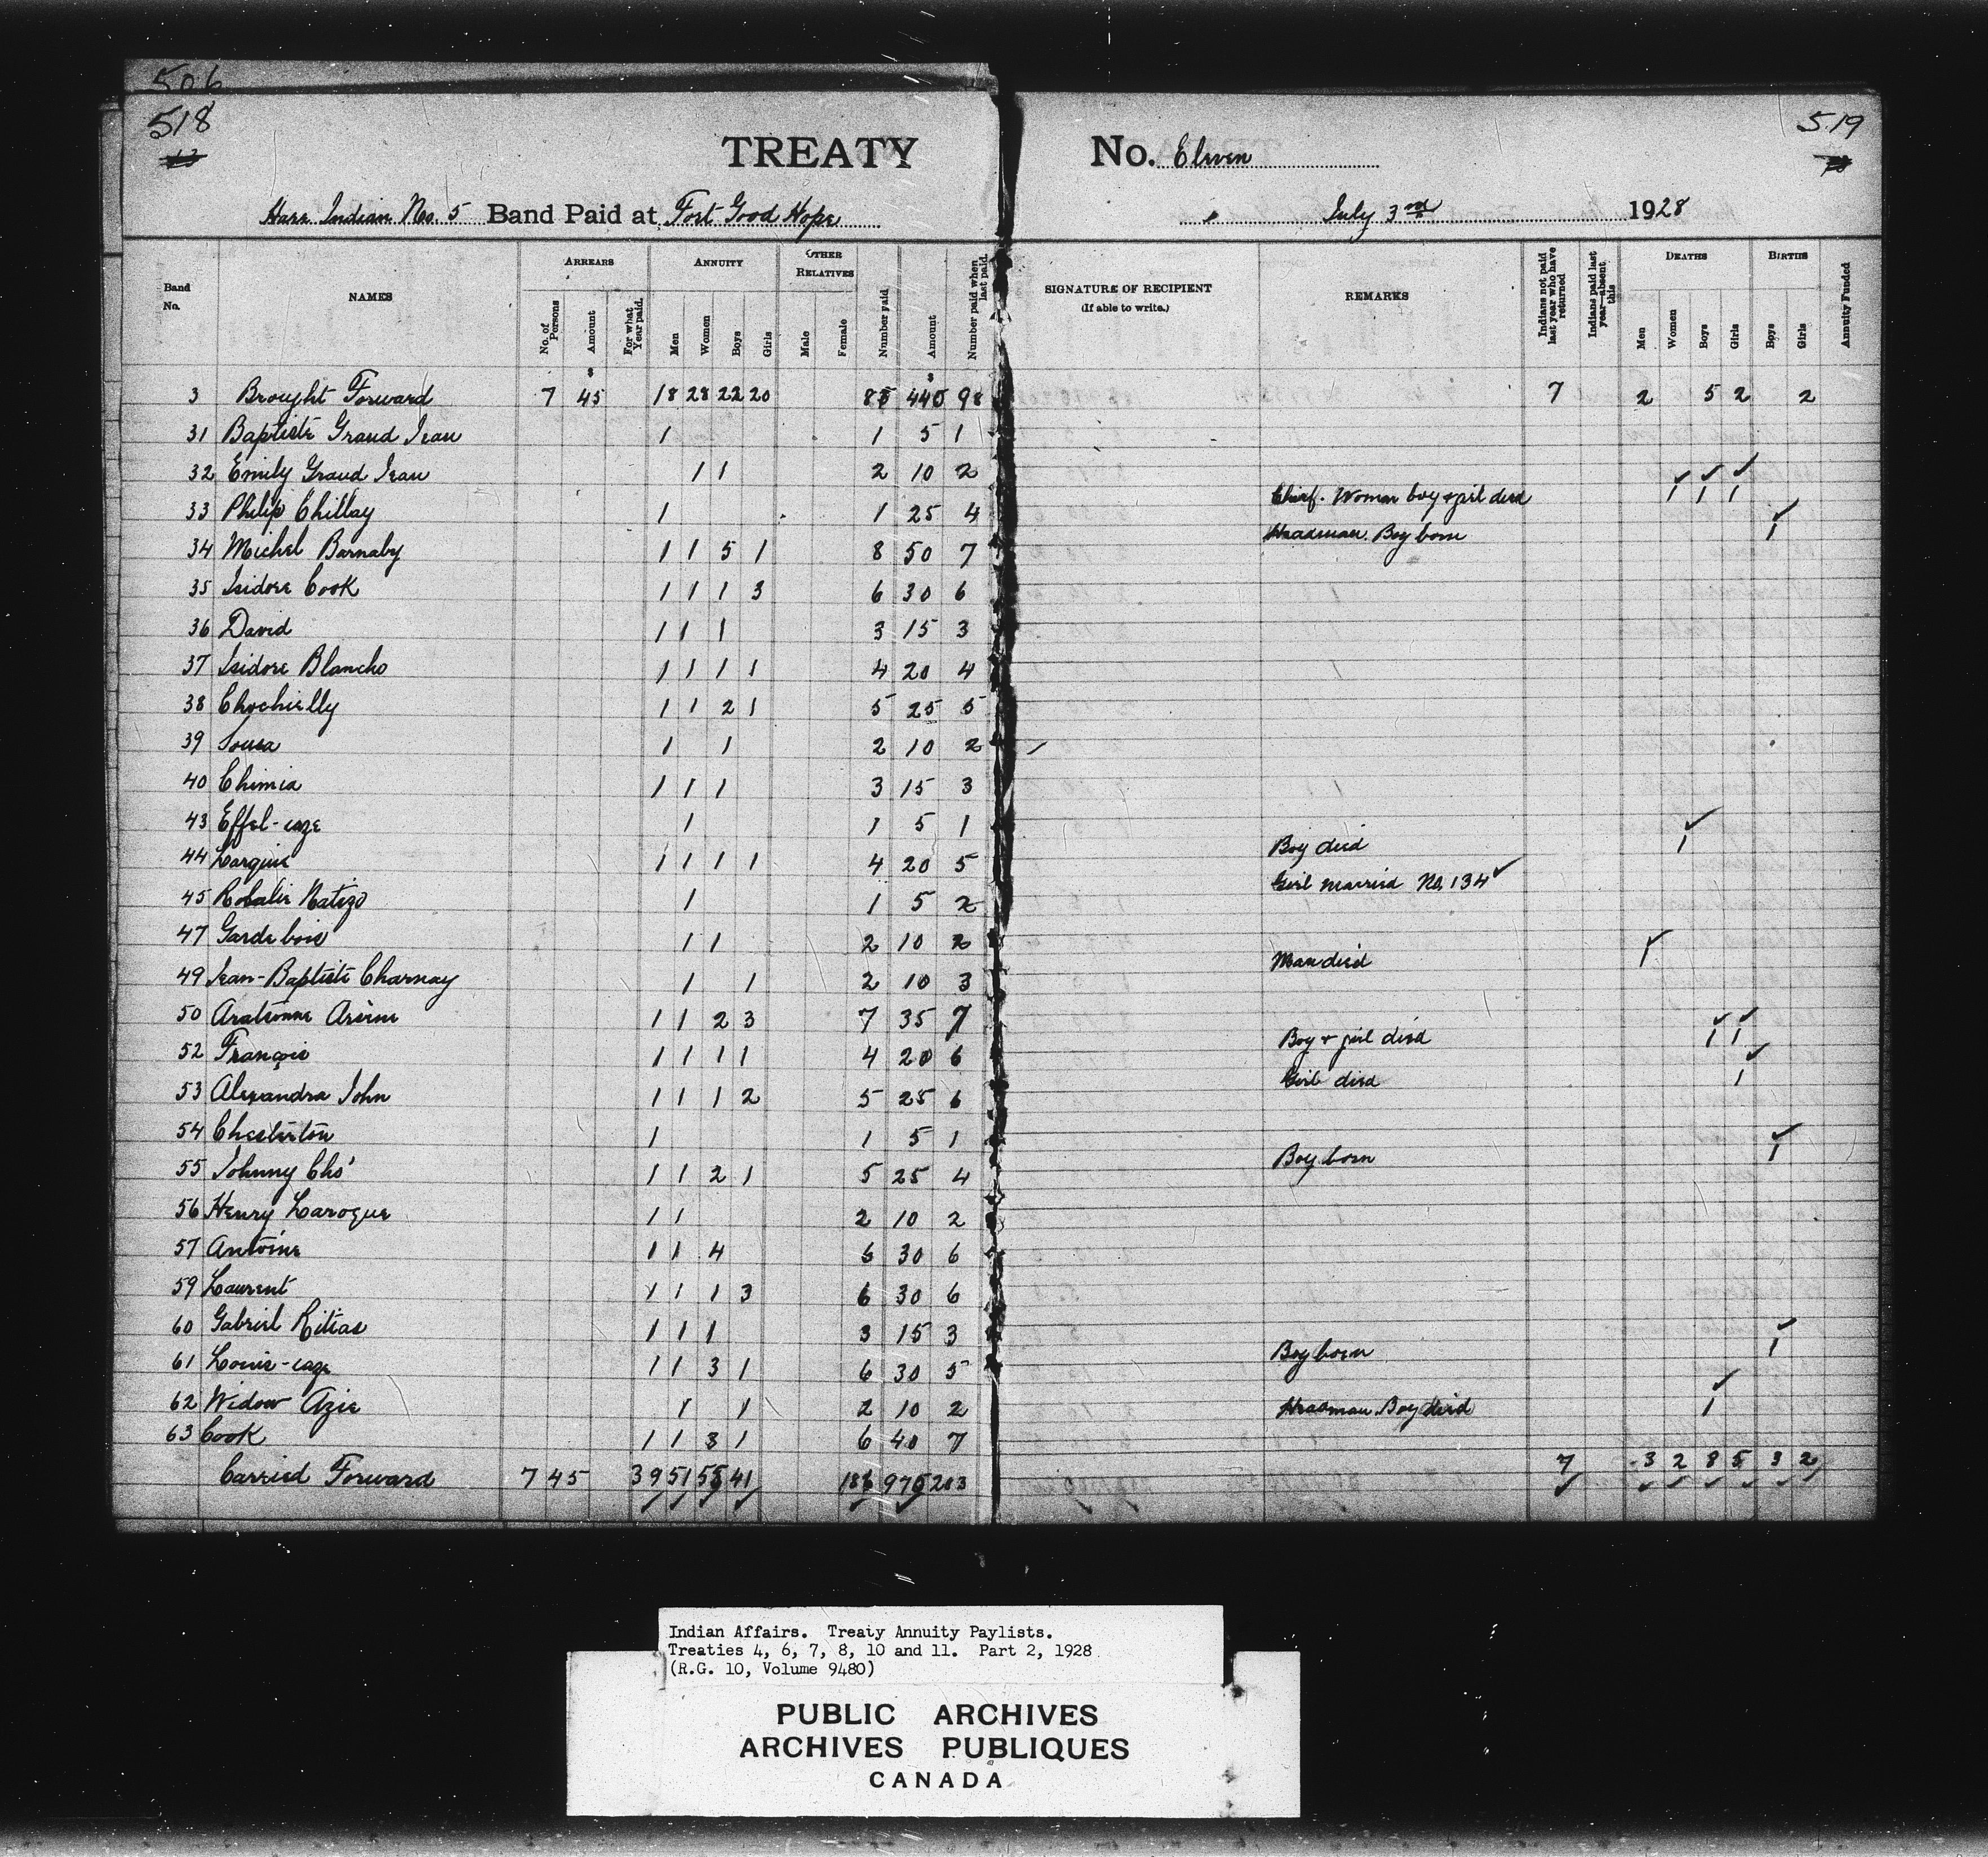 506
518
519
TREATY No. Eleven
Hare Indian No. 5 Band Paid at Fort Good Hope July 3rd 1928
Band No.
NAMES
ARREARS
No. of Persons
Amount
For what Year paid.
ANNUITY
Men
Women
Boys
Girls
OTHER RELATIVES
Male
Female
Number paid
Amount
Number paid when last paid.
SIGNATURE OF RECIPIENT
(If able to write.)
REMARKS
Indians not paid last year who have returned
Indians paid last year—absent this
DEATHS
Men
Women
Boys
Girls
BIRTHS
Boys
Girls
Annuity Funded
3 Brought Forward 7 45 18 28 22 20 440 98 7 2 5 2 2
31 Baptiste Grand Jean 1 1 5 1
32 Emily Grand Jean 1 1 2 10 2
33 Philip Chillay 1 1 25 4 Chief. Woman boy & girl died 1 1 1
34 Michel Barnaby 1 1 5 1 8 50 7 Headman. Boy born 1
35 Isidore Cook 1 1 1 3 6 30 6
36 David 1 1 1 3 15 3
37 Isidore Blancho 1 1 1 1 4 20 4
38 Chochielly 1 1 2 1 5 25 5
39 Sousa 1 1 2 10 2
40 Chimia 1 1 1 3 15 3
43 Effel-caze 1 1 5 1
44 Larquie 1 1 1 1 4 20 5 Boy died 1
45 Rosalie Natizo 1 1 5 2 Girl married No. 134
47 Gardebois 1 1 2 10 2
49 Jean-Baptiste Charnay 1 1 2 10 3 Man died 1
50 Arationne Arsine 1 1 2 3 7 35 7
52 François 1 1 1 1 4 20 6 Boy & girl died 1 1
53 Alexandra John 1 1 1 2 5 25 6 Girl died 1
54 Chesterton 1 1 5 1
55 Johnny Cho' 1 1 2 1 5 25 4 Boy born 1
56 Henry Laroque 1 1 2 10 2
57 Antoine 1 1 4 6 30 6
59 Laurent 1 1 1 3 6 30 6
60 Gabriel Kitias 1 1 1 3 15 3
61 Louie-caze 1 1 3 1 6 30 5 Boy born 1
62 Widow Azie 1 1 2 10 2
63 Cook 1 1 3 1 6 40 7 Headman Boy died 1
Carried Forward 7 45 39 51 55 41 186 970 203 7 3 2 8 5 3 2
Indian Affairs. Treaty Annuity Paylists.
Treaties 4, 6, 7, 8, 10 and 11. Part 2, 1928
(R.G. 10, Volume 9480)
PUBLIC ARCHIVES
ARCHIVES PUBLIQUES
CANADA